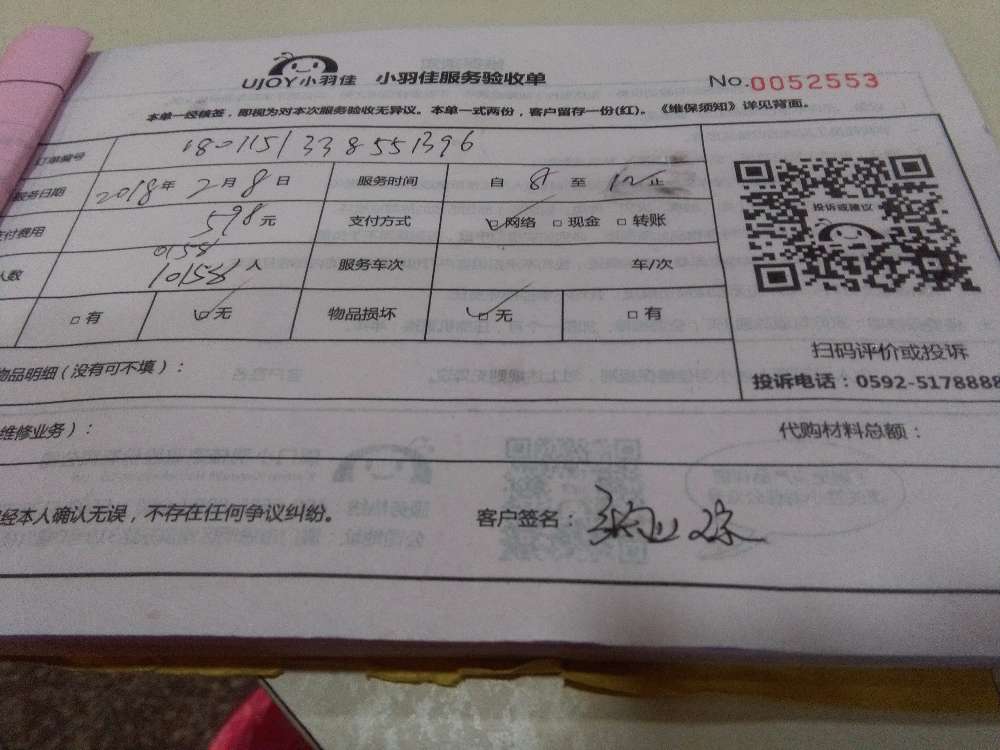 UJOY小羽佳 小羽佳服务验收单 No.0052553
本单一经核签，即视为对本次服务验收无异议。本单一式两份，客户留存一份(红)。《维保须知》详见背面。
订单编号 1801151338551396
服务日期 2018年2月8日 服务时间 自 8 至 12 止
支付费用 598元 支付方式 □网络 □现金 □转账
0158
人数 10158人 服务车次 车/次
□有 □无 物品损坏 □无 □有
投诉或建议
扫码评价或投诉
物品明细（没有可不填）：
投诉电话：0592-5178888
维修业务）： 代购材料总额：
经本人确认无误，不存在任何争议纠纷。 客户签名：